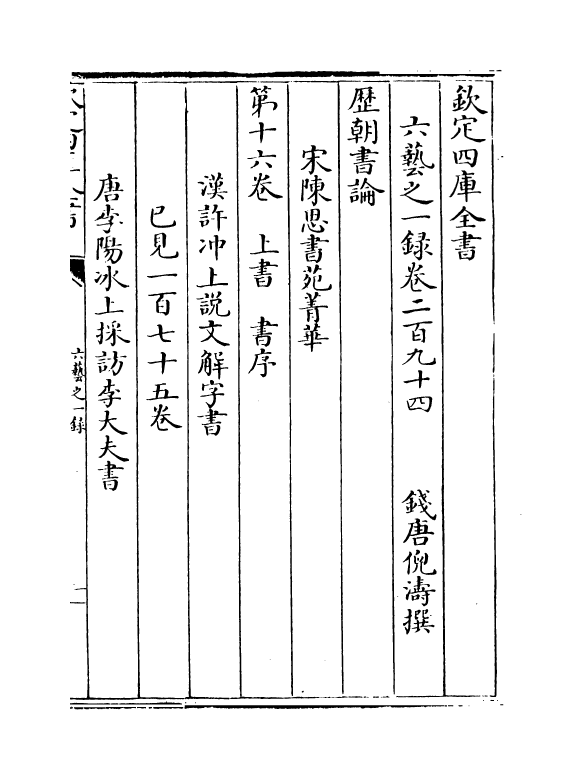 欽定四庫全書
六藝之一録卷二百九十四　錢唐倪濤撰
歷朝書論
宋陳思書苑菁華
第十六卷　上書　書序
漢許冲上説文解字書
已見一百七十五卷
唐李陽冰上採訪李大夫書
六藝之一録